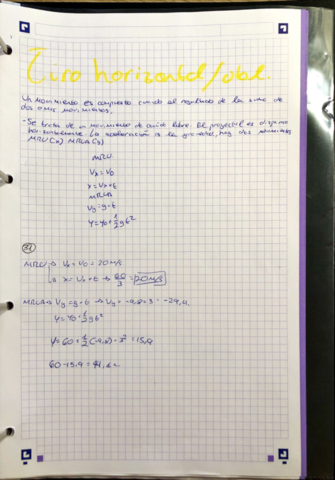 Tiro horizontal/obal.
Un movimiento es compuesto cuando es resultado de la suma de
dos o más movimientos.
-Se trata de un movimiento de caída libre. El proyectil es disparado
horizontalmente. La aceleración es la gravedad, hay dos
MRU(x) MRUA(y)
MRU
Vx = V0
x = Vx·t
MRUA
Vy = g·t
y = y0 + 1/2 g t²
MRU → Vx = V0 = 20 m/s
x = Vx · t → 60/3 = 20 m/s
MRUA → Vy = g·t → Vy = -9,8 · 3 = -29,4
y = y0 + 1/2 g t²
y = 60 + 1/2 (-9,8) · 3² = 15,9
60 - 15,9 =